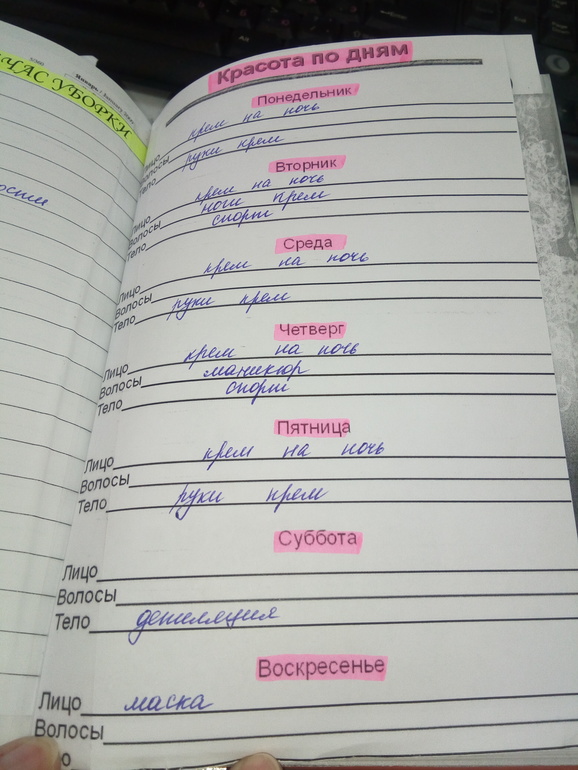 ЧАС УБОРКИ
Красота по дням
Понедельник
Лицо крем на ночь
Волосы
Тело руки крем
Вторник
Лицо крем на ночь
Волосы ноги крем
Тело спорт
Среда
Лицо крем на ночь
Волосы
Тело руки крем
Четверг
Лицо крем на ночь
Волосы маникюр
Тело спорт
Пятница
Лицо крем на ночь
Волосы
Тело руки крем
Суббота
Лицо
Волосы
Тело депиляция
Воскресенье
Лицо маска
Волосы
о